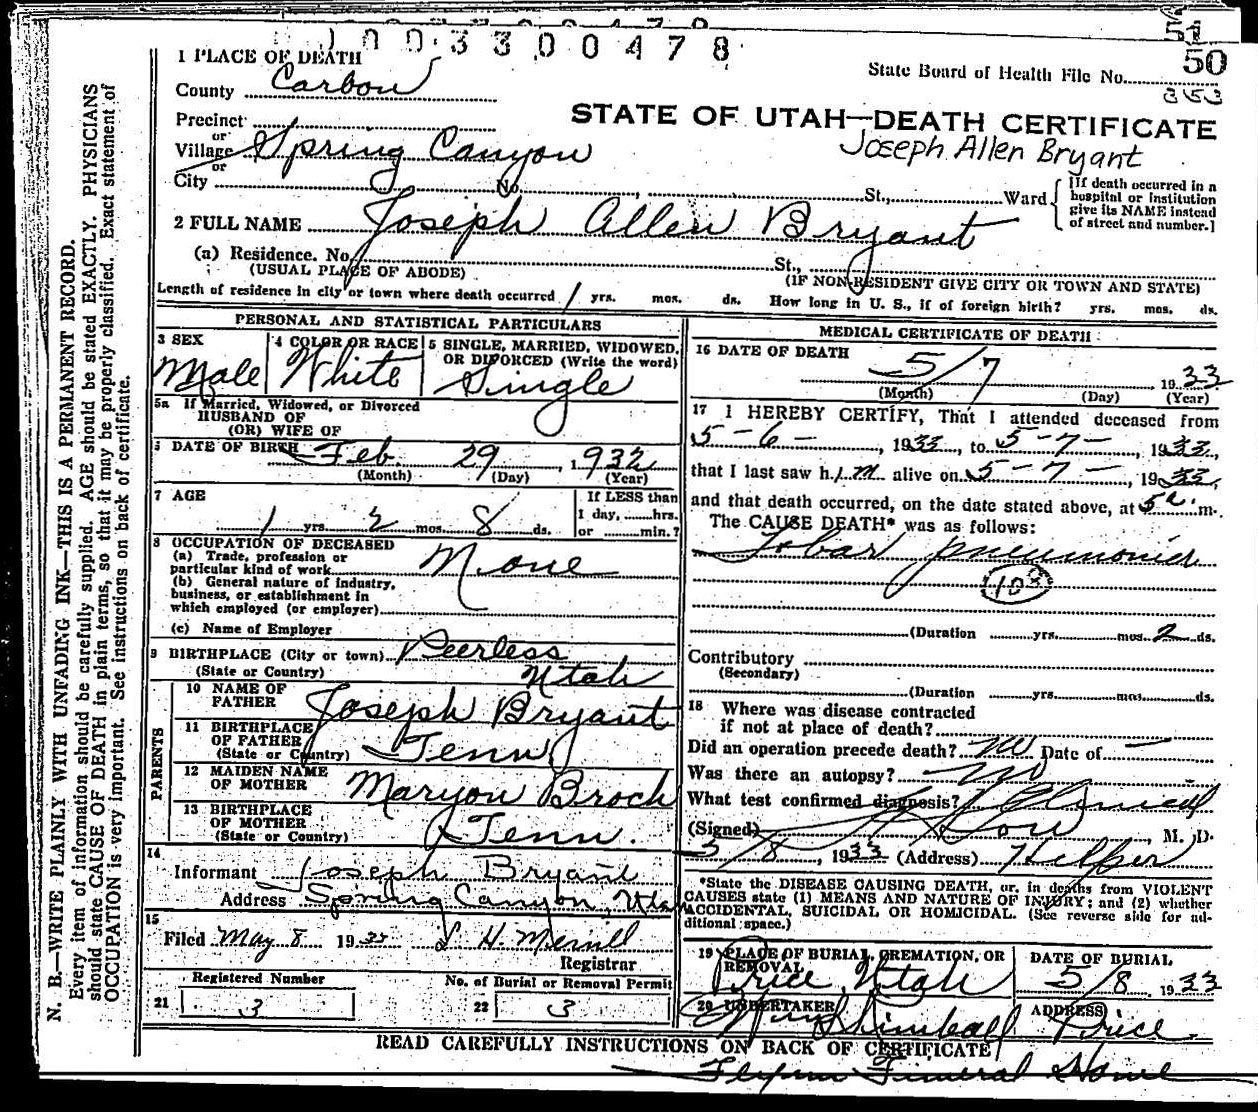 1003300478
51
50
1 PLACE OF DEATH
State Board of Health File No.
353
County Carbon
STATE OF UTAH—DEATH CERTIFICATE
Precinct
or
Joseph Allen Bryant
Village Spring Canyon
or
City No. St., Ward
[If death occurred in a hospital or institution give its NAME instead of street and number.]
2 FULL NAME Joseph Allen Bryant
(a) Residence. No. St.,
(USUAL PLACE OF ABODE) (IF NON-RESIDENT GIVE CITY OR TOWN AND STATE)
Length of residence in city or town where death occurred 1 yrs. mos. ds. How long in U. S., if of foreign birth? yrs. mos. ds.
PERSONAL AND STATISTICAL PARTICULARS
3 SEX 4 COLOR OR RACE 5 SINGLE, MARRIED, WIDOWED,
OR DIVORCED (Write the word)
Male White Single
5a If Married, Widowed, or Divorced
HUSBAND OF
(OR) WIFE OF
6 DATE OF BIRTH Feb 29, 1932
(Month) (Day) (Year)
7 AGE
1 yrs. 2 mos. 8 ds.
If LESS than
1 day, hrs.
or min.?
8 OCCUPATION OF DECEASED
(a) Trade, profession or
particular kind of work None
(b) General nature of Industry,
business, or establishment in
which employed (or employer)
(c) Name of Employer
9 BIRTHPLACE (City or town) Peerless
(State or Country) Utah
PARENTS
10 NAME OF
FATHER Joseph Bryant
11 BIRTHPLACE
OF FATHER
(State or Country) Tenn
12 MAIDEN NAME
OF MOTHER Maryon Broch
13 BIRTHPLACE
OF MOTHER
(State or Country) Tenn.
14
Informant Joseph Bryant
Address Spring Canyon, Utah
15
Filed May 8 1933 L H Merrill
Registrar
Registered Number No. of Burial or Removal Permit
21 3 22 3
MEDICAL CERTIFICATE OF DEATH
16 DATE OF DEATH
5/7 1933
(Month) (Day) (Year)
17 I HEREBY CERTIFY, That I attended deceased from
5-6-, 1933, to 5-7-, 1933,
that I last saw him alive on 5-7-, 1933,
and that death occurred, on the date stated above, at 5 a. m.
The CAUSE DEATH* was as follows:
Lobar pneumonia
108
(Duration yrs. mos. 2 ds.
Contributory
(Secondary)
(Duration yrs. mos. ds.
18 Where was disease contracted
if not at place of death?
Did an operation precede death? no Date of —
Was there an autopsy? no
What test confirmed diagnosis? Clinical
(Signed) M. D.
5/8, 1933 (Address) Helper
*State the DISEASE CAUSING DEATH, or, in deaths from VIOLENT
CAUSES state (1) MEANS AND NATURE OF INJURY; and (2) whether
ACCIDENTAL, SUICIDAL OR HOMICIDAL. (See reverse side for ad-
ditional space.)
19 PLACE OF BURIAL, CREMATION, OR
REMOVAL
Price, Utah
DATE OF BURIAL
5/8 1933
20 UNDERTAKER ADDRESS
Kimball Price
READ CAREFULLY INSTRUCTIONS ON BACK OF CERTIFICATE
Flynn Funeral Home
N. B.—WRITE PLAINLY WITH UNFADING INK—THIS IS A PERMANENT RECORD.
Every item of information should be carefully supplied. AGE should be stated EXACTLY. PHYSICIANS
should state CAUSE OF DEATH in plain terms, so that it may be properly classified. Exact statement of
OCCUPATION is very important. See instructions on back of certificate.